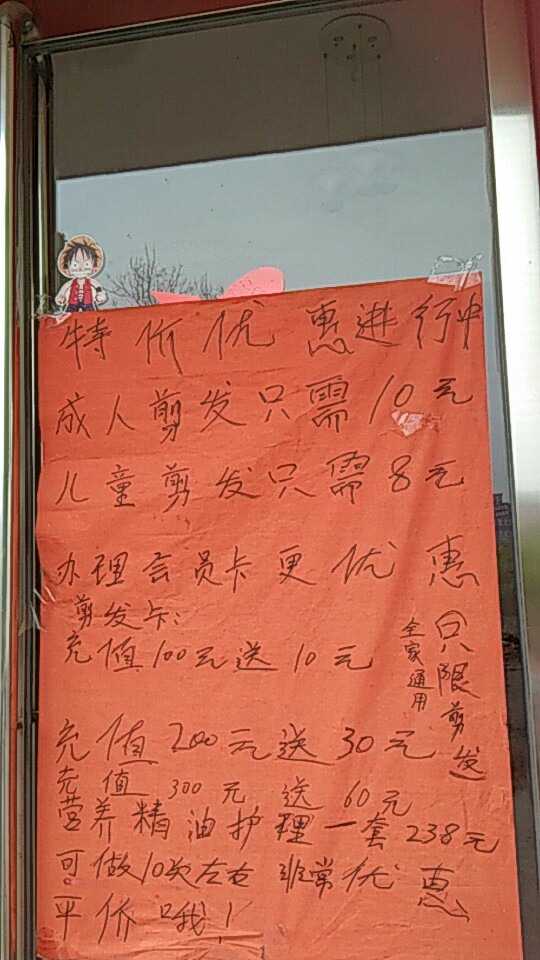 特价优惠进行中
成人剪发只需10元
儿童剪发只需8元
办理会员卡更优惠
剪发卡:
充值100元送10元
全家通用
(只限剪发
充值200元送30元
充值300元送60元
营养精油护理一套238元
可做10次左右 非常优惠
平价哦!